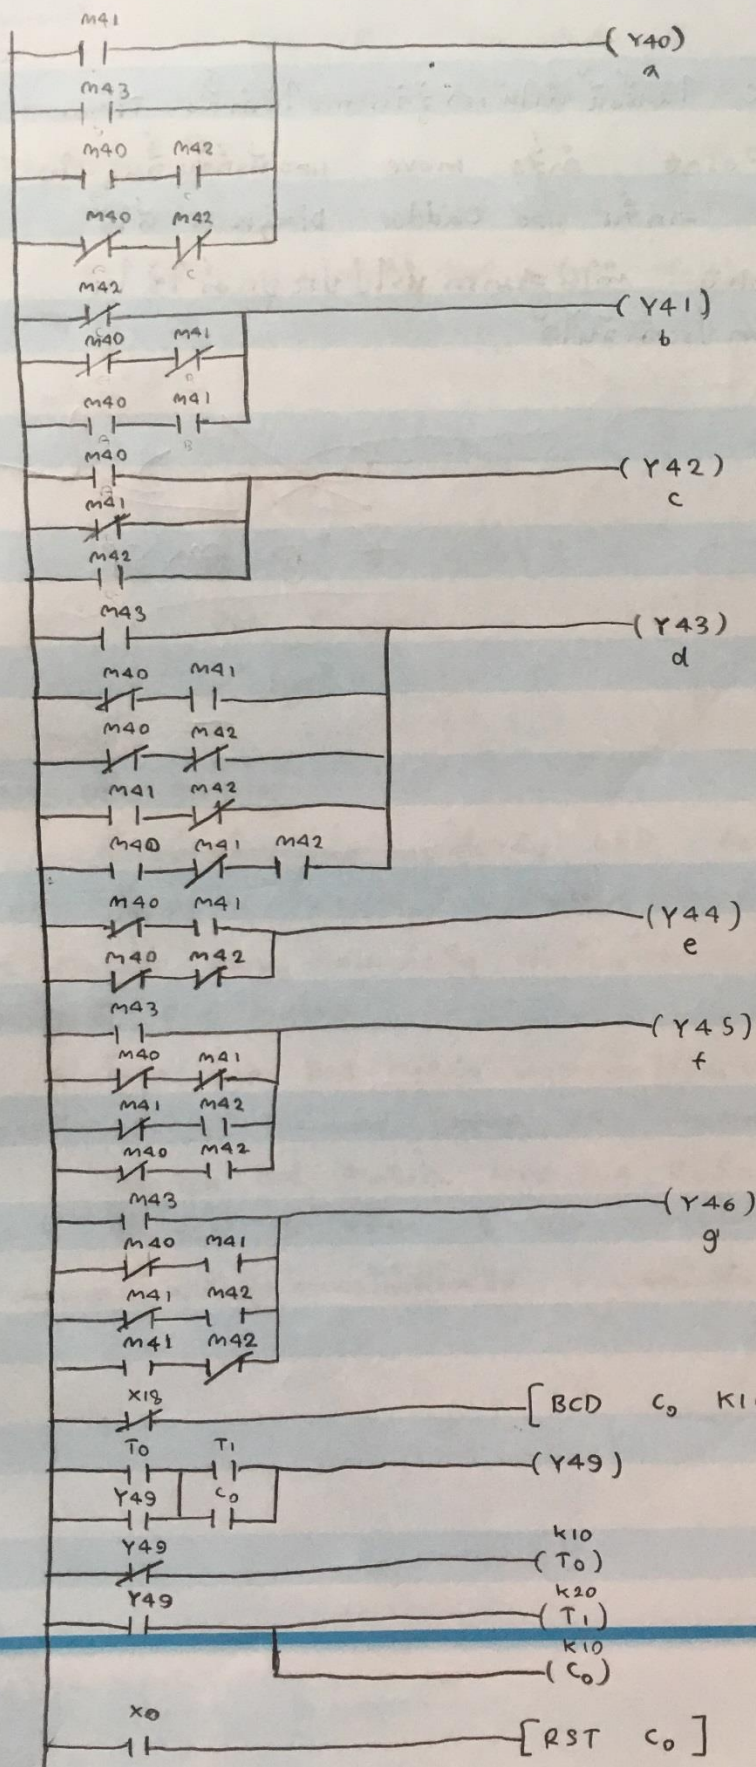 M41
(Y40)
a
M43
M40 M42
M40 M42
C
M42
(Y41)
b
M40 M41
M40 M41
B
M40
(Y42)
c
M41
M42
M43
(Y43)
d
M40 M41
M40 M42
M41 M42
M40 M41 M42
M40 M41
(Y44)
e
M40 M42
M43
(Y45)
f
M40 M41
M41 M42
M40 M42
M43
(Y46)
g
M40 M41
M41 M42
M41 M42
X18
[BCD C0 K1
T0 T1
(Y49)
Y49 C0
Y49
K10
(T0)
Y49
K20
(T1)
K10
(C0)
X0
[RST C0]